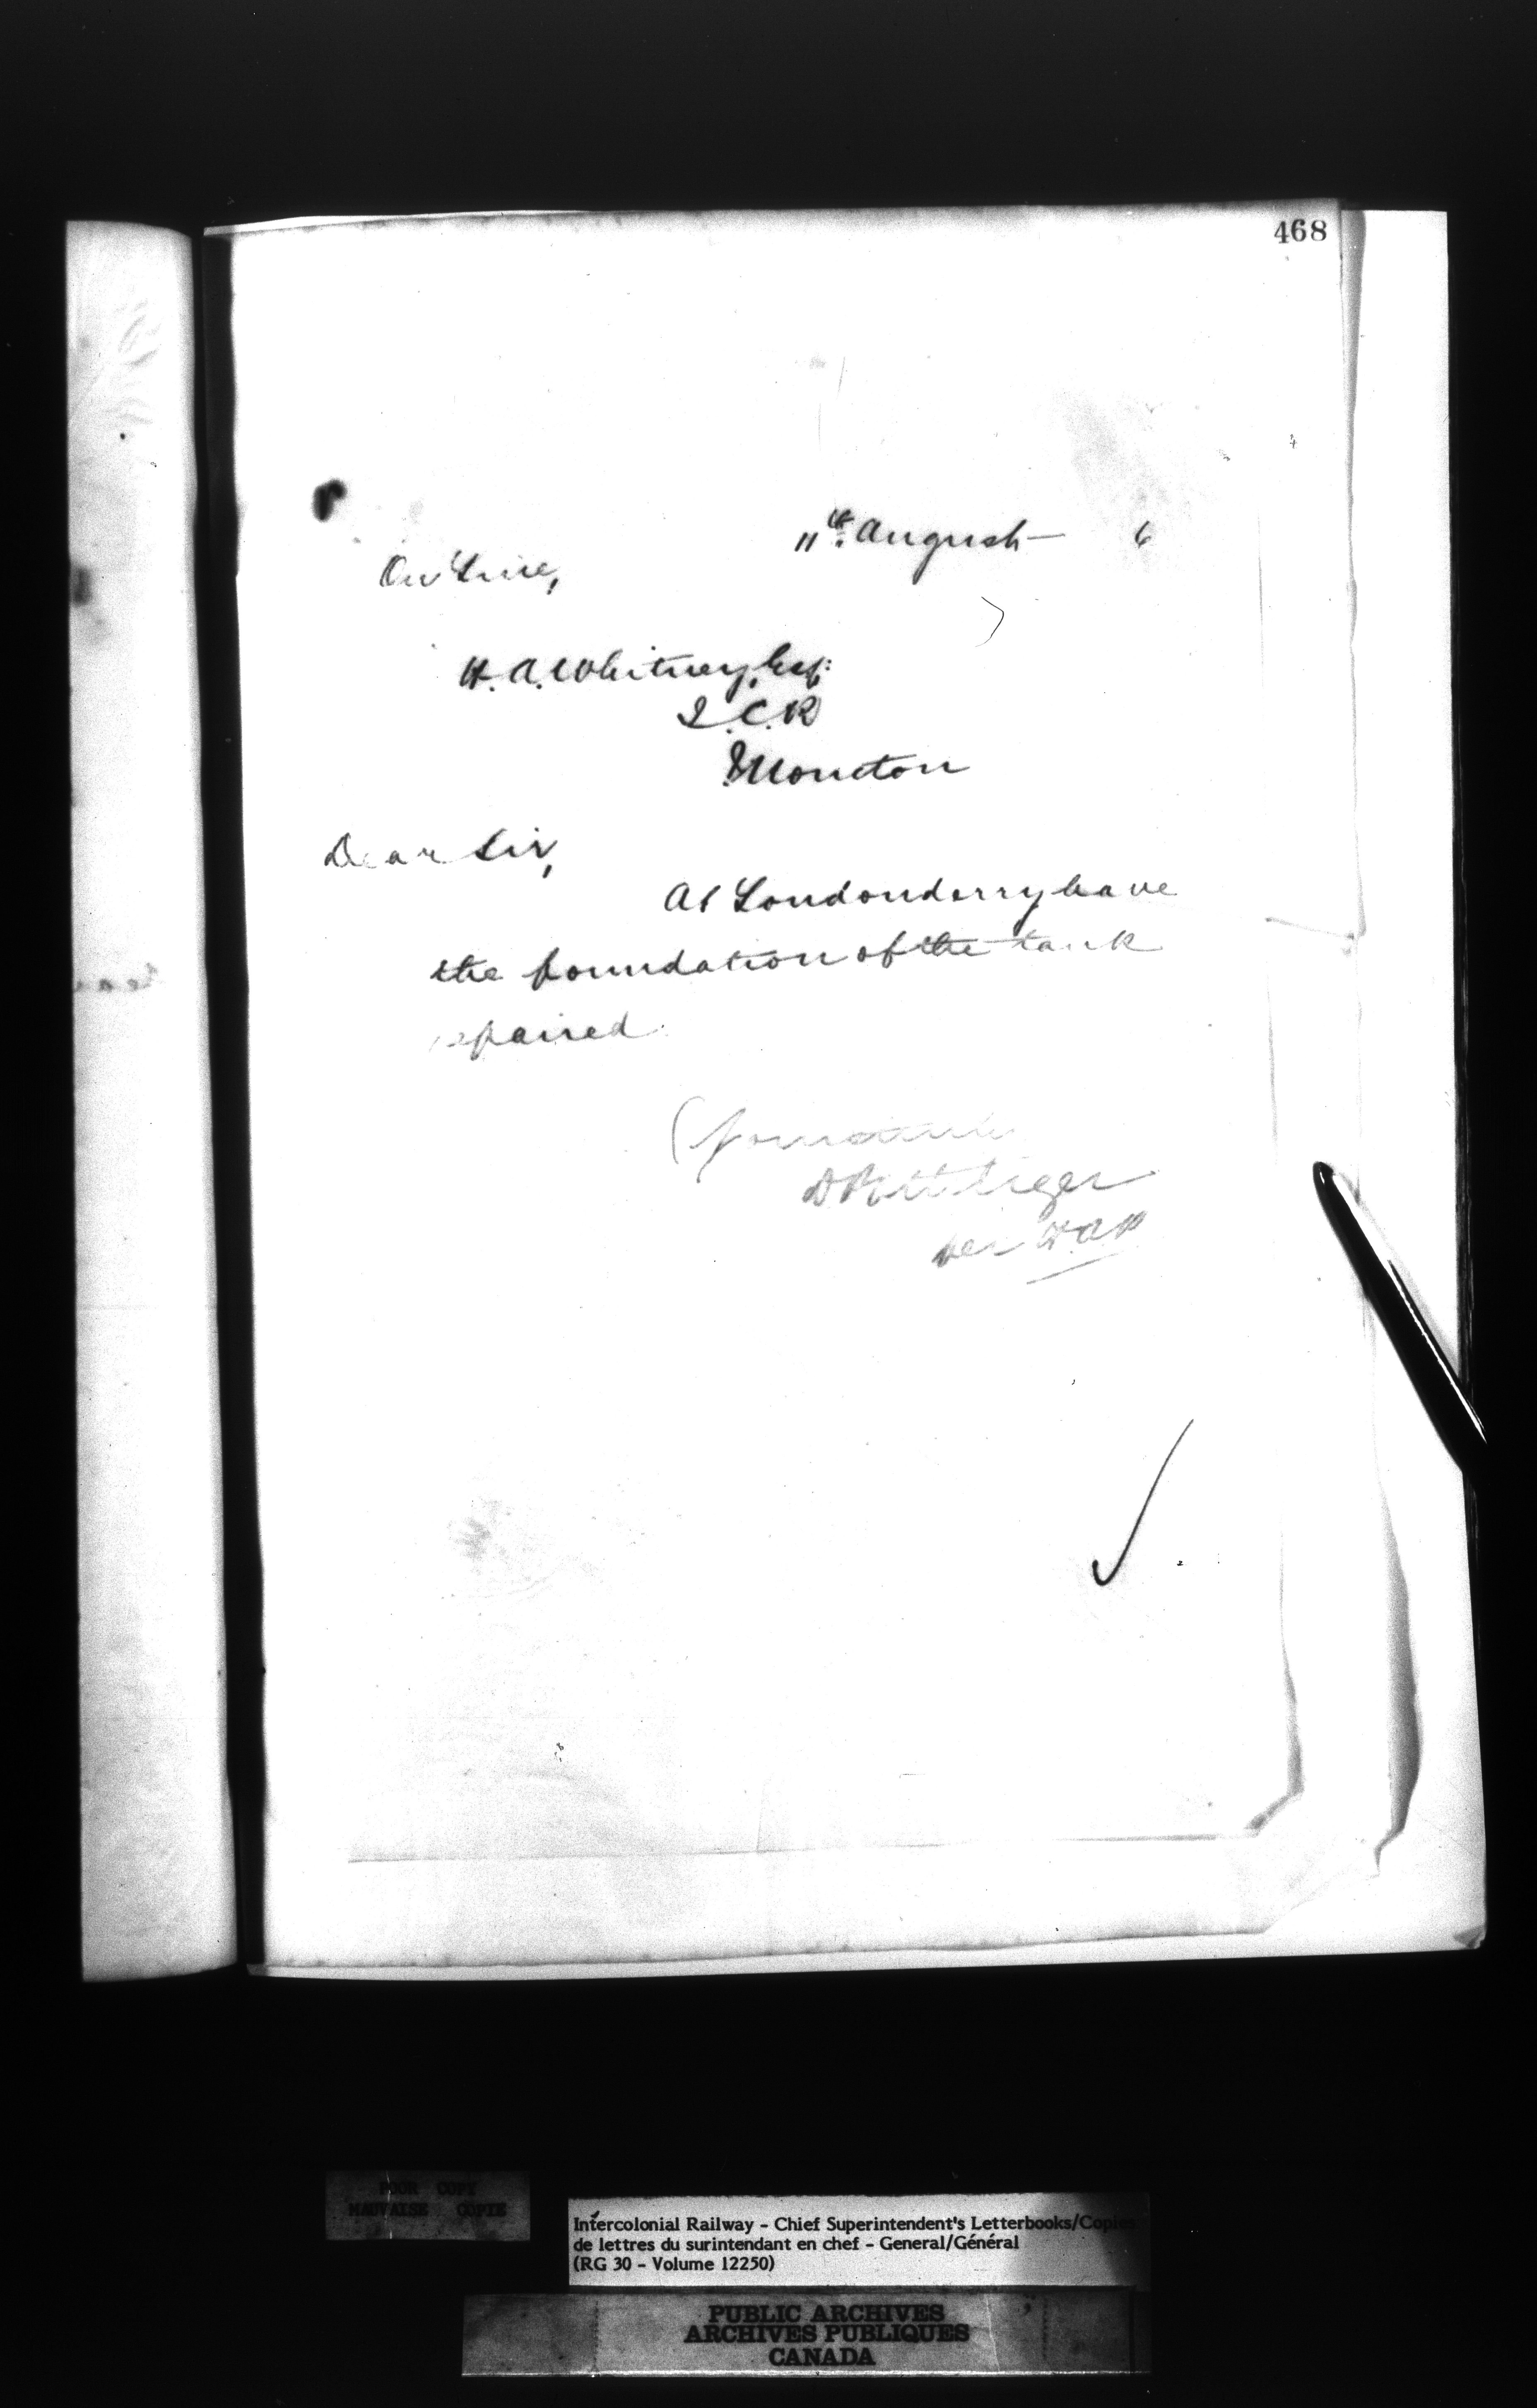 468
11th August 6
On Line,
H. A. Whitney, Esq:
I.C.R
Moncton
Dear Sir,
At Londonderry have
the foundation of the tank
repaired.
Yours truly
D Pottinger
per
POOR COPY
MAUVAISE COPIE
Intercolonial Railway - Chief Superintendent's Letterbooks/Copies
de lettres du surintendant en chef - General/Général
(RG 30 - Volume 12250)
PUBLIC ARCHIVES
ARCHIVES PUBLIQUES
CANADA